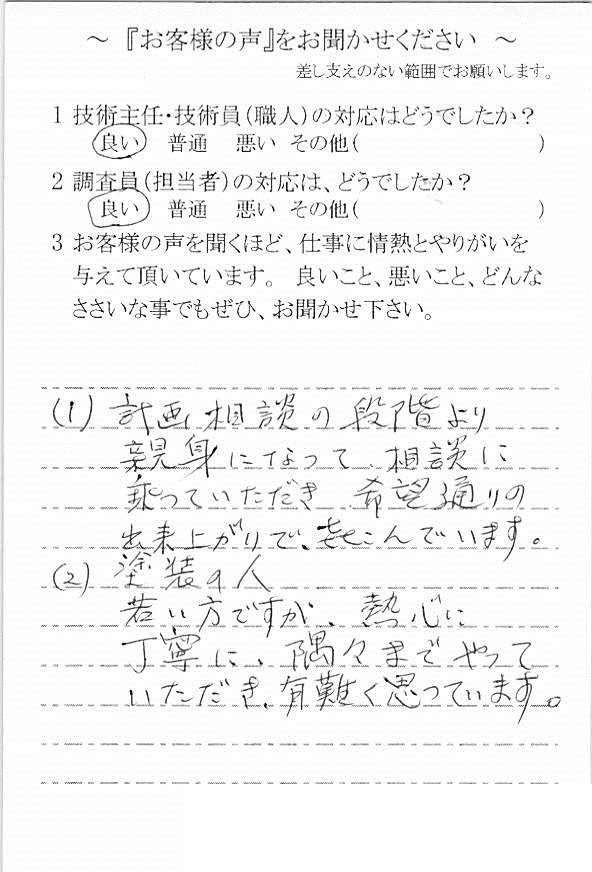 ～ 『お客様の声』をお聞かせください ～
差し支えのない範囲でお願いします。
1 技術主任・技術員(職人)の対応はどうでしたか？
良い 普通 悪い その他( )
2 調査員(担当者)の対応は、どうでしたか？
良い 普通 悪い その他( )
3 お客様の声を聞くほど、仕事に情熱とやりがいを
与えて頂いています。 良いこと、悪いこと、どんな
ささいな事でもぜひ、お聞かせ下さい。
(1) 計画、相談の段階より
親身になって、相談に
乗っていただき 希望通りの
出来上がりで、喜こんでいます。
(2) 塗装の人
若い方ですが、熱心に
丁寧に、隅々までやって
いただき、有難く思っています。